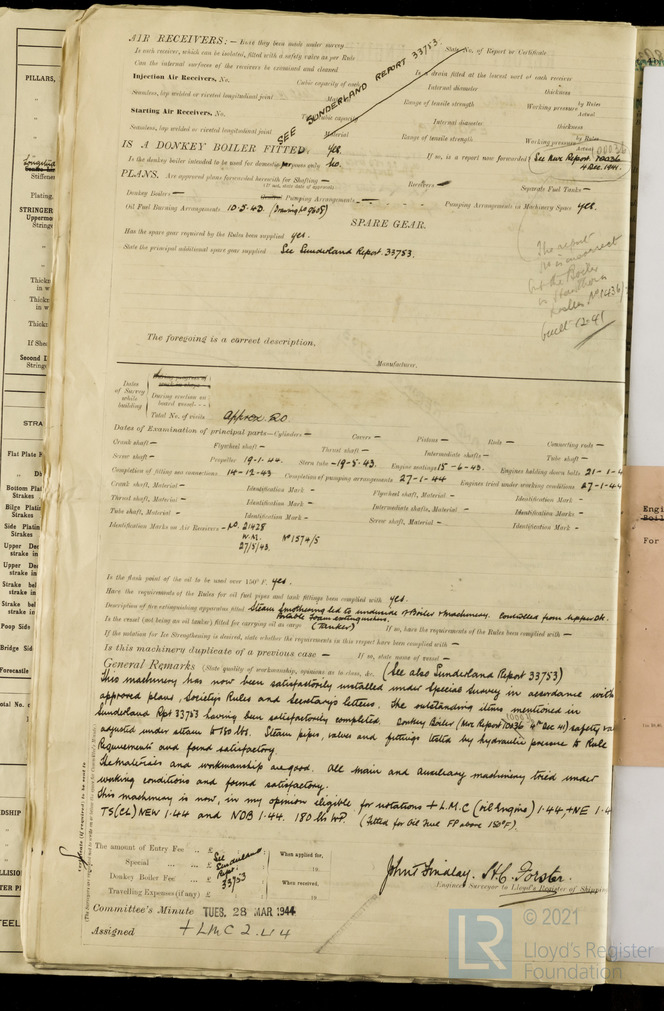 AIR RECEIVERS:— Have they been made under survey
State No. of Report or Certificate
Is each receiver, which can be isolated, fitted with a safety valve as per Rule
Can the internal surfaces of the receivers be examined and cleaned
Is a drain fitted at the lowest part of each receiver
Injection Air Receivers, No. Cubic capacity of each Internal diameter thickness
Seamless, lap welded or riveted longitudinal joint Material Range of tensile strength Working pressure by Rules Actual
Starting Air Receivers, No. Total cubic capacity Internal diameter thickness
Seamless, lap welded or riveted longitudinal joint Material Range of tensile strength Working pressure by Rules Actual
SEE SUNDERLAND REPORT 33753.
IS A DONKEY BOILER FITTED. Yes. If so, is a report now forwarded? See Nwc Report 10036
Is the donkey boiler intended to be used for domestic purposes only No. 4 Dec. 1941.
PLANS. Are approved plans forwarded herewith for Shafting — Receivers — Separate Fuel Tanks —
(If not, state date of approval)
Donkey Boilers — Pumping Arrangements — Pumping Arrangements in Machinery Space yes.
Oil Fuel Burning Arrangements 10.5.43. (Drawing No 9605)
SPARE GEAR.
Has the spare gear required by the Rules been supplied yes.
State the principal additional spare gear supplied See Sunderland Report 33753.
The report
No is incorrect
built 12.41
The foregoing is a correct description,
Manufacturer.
Dates of Survey while building
During erection on board vessel - - -
Total No. of visits Approx 20
Dates of Examination of principal parts—Cylinders — Covers — Pistons — Rods — Connecting rods —
Crank shaft — Flywheel shaft — Thrust shaft — Intermediate shafts — Tube shaft —
Screw shaft — Propeller 19-1-44. Stern tube — 19-5-43. Engine seatings 15-6-43. Engines holding down bolts 21-1-4
Completion of fitting sea connections 14-12-43 Completion of pumping arrangements 27-1-44 Engines tried under working conditions 27-1-44
Crank shaft, Material — Identification Mark — Flywheel shaft, Material — Identification Mark —
Thrust shaft, Material — Identification Mark — Intermediate shafts, Material — Identification Marks —
Tube shaft, Material — Identification Mark — Screw shaft, Material — Identification Mark —
Identification Marks on Air Receivers — No. 21428
W.M. No 1574/5
27/5/43.
Is the flash point of the oil to be used over 150° F. yes.
Have the requirements of the Rules for oil fuel pipes and tank fittings been complied with yes.
Description of fire extinguishing apparatus fitted Steam smothering led to underside of Boiler & machinery. Controlled from upper Dk.
Portable Foam extinguishers.
Is the vessel (not being an oil tanker) fitted for carrying oil as cargo (Tanker) If so, have the requirements of the Rules been complied with —
If the notation for Ice Strengthening is desired, state whether the requirements in this respect have been complied with —
Is this machinery duplicate of a previous case — If so, state name of vessel —
General Remarks (State quality of workmanship, opinions as to class, &c. (See also Sunderland Report 33753)
This machinery has now been satisfactorily installed under Special Survey in accordance with
approved plans, Society's Rules and Secretary's letters. The outstanding items mentioned in
Sunderland Rpt 33753 having been satisfactorily completed. Donkey Boiler (Nwc Report 10036 4th Dec 41) safety va
adjusted under steam to 180 lbs. Steam pipes, valves and fittings tested by hydraulic pressure to Rule
Requirements and found satisfactory.
The materials and workmanship are good. All main and auxiliary machinery tried under
working conditions and found satisfactory.
This machinery is now, in my opinion eligible for notations + L.M.C (oil engine) 1.44, + NE 1.4
TS(CL) NEW 1.44 and NDB 1.44. 180 lbs WP (Fitted for Oil Fuel FP above 150°F).
The amount of Entry Fee .. £
Special .. .. £
Donkey Boiler Fee .. £
Travelling Expenses (if any) £
See Sunderland Rpt. 33753
When applied for,
19
When received,
19
John Findlay. H.C. Forster.
Engineer Surveyor to Lloyd's Register of Shipping
Committee's Minute TUES. 28 MAR 1944
Assigned + LMC 2.44
PILLARS,
Stiffener
Plating,
STRINGER
Uppermo
Second D
STRA
Flat Plate
Bottom Plat
Strakes
Bilge Platin
Strakes
Side Platin
Strakes
Upper Dec
strake in
Upper Dec
strake in
Poop Side
Bridge Sid
Forecastle
Engi
For
LR
© 2021
Lloyd's Register
Foundation